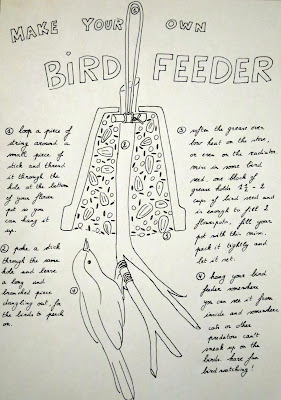 MAKE YOUR OWN
BIRD FEEDER
① loop a piece of
string around a
small piece of
stick and thread
it through the
hole at the bottom
of your flower
pot so you
can hang it
up.
② poke a stick
through the same
hole and leave
a long and
branched piece
dangling out for
the birds to perch
on.
③ soften the grease over
low heat on the stove,
or even on the radiator.
mix in some bird
seed. one block of
grease holds 1½ - 2
cups of bird seed and
is enough to fill 2
flowerpots. fill your
pot with the mix.
pack it tightly and
let it set.
④ hang your bird
feeder somewhere
you can see it from
inside and somewhere
cats or other
predators can't
sneak up on the
birds. have fun
birdwatching!